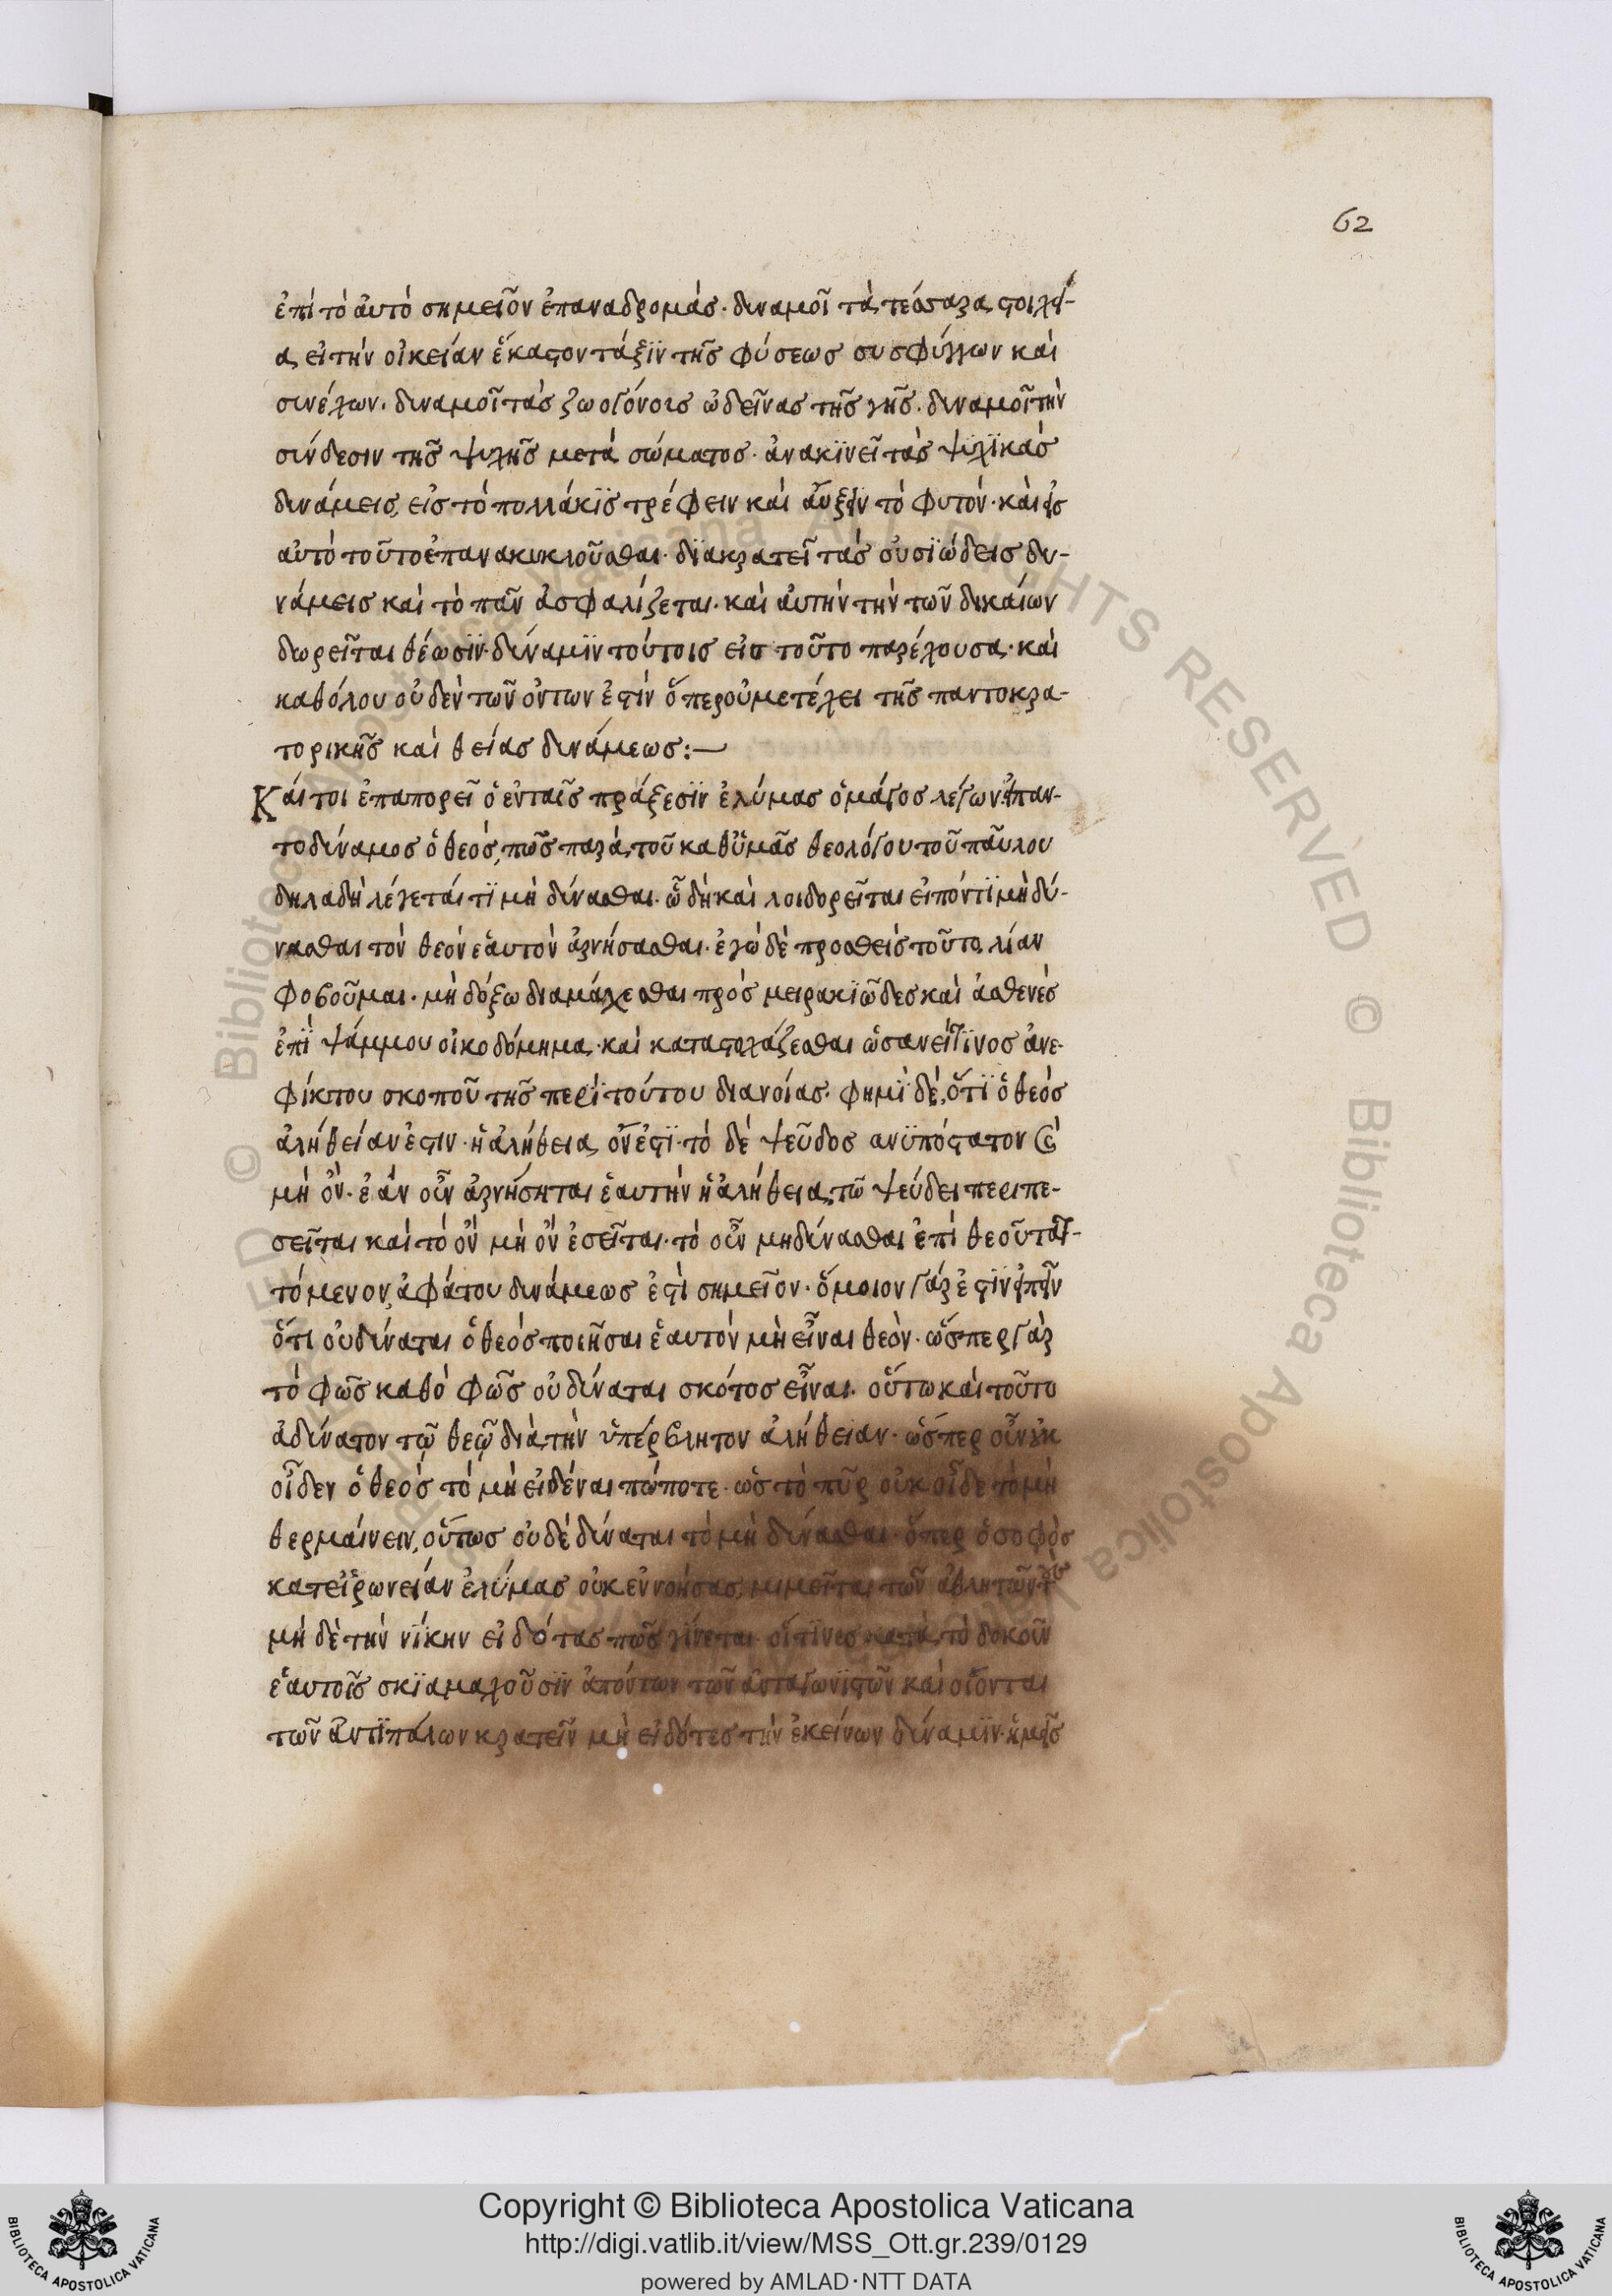 62
ἐπὶ τὸ ἀυτὸ σημεῖον ἐπαναδρομάσ· δυναμοῖ τὰ τέσσαρα στοιχεῖ-
α, εἰ τὴν οἰκείαν ἕκαστον τάξϊν τῆσ φύσεωσ συσφύγγων καὶ
συνέχων. δυναμοῖ τὰσ ζωογόνοισ ὠδεῖνασ τῆσ γῆσ. δυναμοῖ τὴν
σύνδεσιν τῆσ ψυχῆσ μετὰ σώματοσ· ἀνακϊνεῖ τὰσ ψυχϊκὰσ
δυνάμεισ, εἰσ τὸ πολλάκϊσ τρέφειν καὶ ἄυξειν τὸ φυτόν· καὶ εἰσ
αὐτὸ τοῦτο ἐπανακυκλοῦσθαι· δϊακρατεῖ τὰσ οὐσϊώδεισ δυ-
νάμεισ καὶ τὸ πᾶν ἀσφαλίζεται. καὶ ἀυτὴν τὴν τῶν δικαίων
δωρεῖται θέωσϊν· δύναμϊν τούτοισ εἰσ τοῦτο παρέχουσα· καὶ
καθόλου οὐδὲν τῶν ὄντων ἐστὶν ὅπερ οὐ μετέχει τῆσ παντοκρα-
τορικῆσ καὶ θείασ δυνάμεωσ:—
Κάιτοι ἐπαπορεῖ ὁ ἐν ταῖσ πράξεσϊν ἐλύμασ ὁ μάγοσ λέγων· εἰ παν-
τοδύναμοσ ὁ θεόσ, πῶσ παρὰ τοῦ καθ ὑμᾶσ θεολόγου τοῦ παῦλου
δηλαδὴ λέγεταί τϊ μὴ δύνασθαι. ὧ δὴ καὶ λοιδορεῖται εἰπόντϊ μὴ δύ-
νασθαι τὸν θεὸν ἑαυτὸν ἀρνήσασθαι. ἐγὼ δὲ προσθεὶσ τοῦτο, λίαν
φοβοῦμαι. μὴ δόξω διαμάχεσθαι πρὸσ μειρακϊῶδεσ καὶ ἀσθενὲσ
ἐπϊ ψάμμου οἰκοδόμημα. καὶ καταστοχάζεσθαι ὡσανεί τϊνοσ ἀνε-
φίκτου σκοποῦ τῆσ περὶ τούτου διανοίασ. φημϊ δέ, ὅτϊ ὁ θεὸσ
ἀλήθείαν ἐστιν· ἡ ἀλήθεια ὄν ἐστϊ· τὸ δέ ψεῦδοσ ανϋπόστατον καὶ
μὴ ὄν. ἐὰν οὖν ἀρνήσηται ἑαυτὴν ἡ ἀλήθεια, τῶ ψεύδει περιπε-
σεῖται καὶ τὸ ὂν μὴ ὂν ἐσεῖται. τὸ οὖν μη δύνασθαι ἐπὶ θεοῦ ταττ-
τόμενον, ἀφάτου δυνάμεωσ ἐστὶ σημεῖον. ὅμοιον γάρ ἐστϊν εἰπεῖν
ὅτι οὐ δύναται ὁ θεόσ ποιῆσαι ἑαυτὸν μὴ εἶναι θεὸν. ὥσπερ γὰρ
τὸ φῶσ καθὸ φῶσ οὐ δύναται σκότοσ εἶναι. οὕτω καὶ τοῦτο
ἀδύνατον τῷ θεῷ διὰ τὴν ὑπέρβλητον ἀλήθειαν. ὥσπερ οὖν οὐκ
οἶδεν ὁ θεόσ τὸ μὴ εἰδέναι πώποτε. ὡσ τὸ πῦρ οὐκ οἶδε τὸ μὴ
θερμαίνειν, οὕτωσ οὐδὲ δύναται τὸ μὴ δύνασθαι. ὅπερ ὁ σοφὸσ
κατεἰρωνείαν ἐλύμασ οὐκ ἐννοήσασ, μιμεῖται τῶν ἀθλητῶν τοὺσ
μὴ δὲ τὴν νίκην εἰδότασ πῶσ γίνεται· οἵτϊνεσ κατὰ τὸ δοκοῦν
ἑαυτοῖσ σκϊαμαχοῦσϊν ἀπόντων τῶν ἀνταγωνϊστῶν καὶ οἴονται
τῶν ἀντϊπάλων κρατεῖν μὴ εἰδότεσ τὴν ἐκείνων δύναμϊν· ἡμεῖσ
Copyright © Biblioteca Apostolica Vaticana
http://digi.vatlib.it/view/MSS_Ott.gr.239/0129
powered by AMLAD·NTT DATA